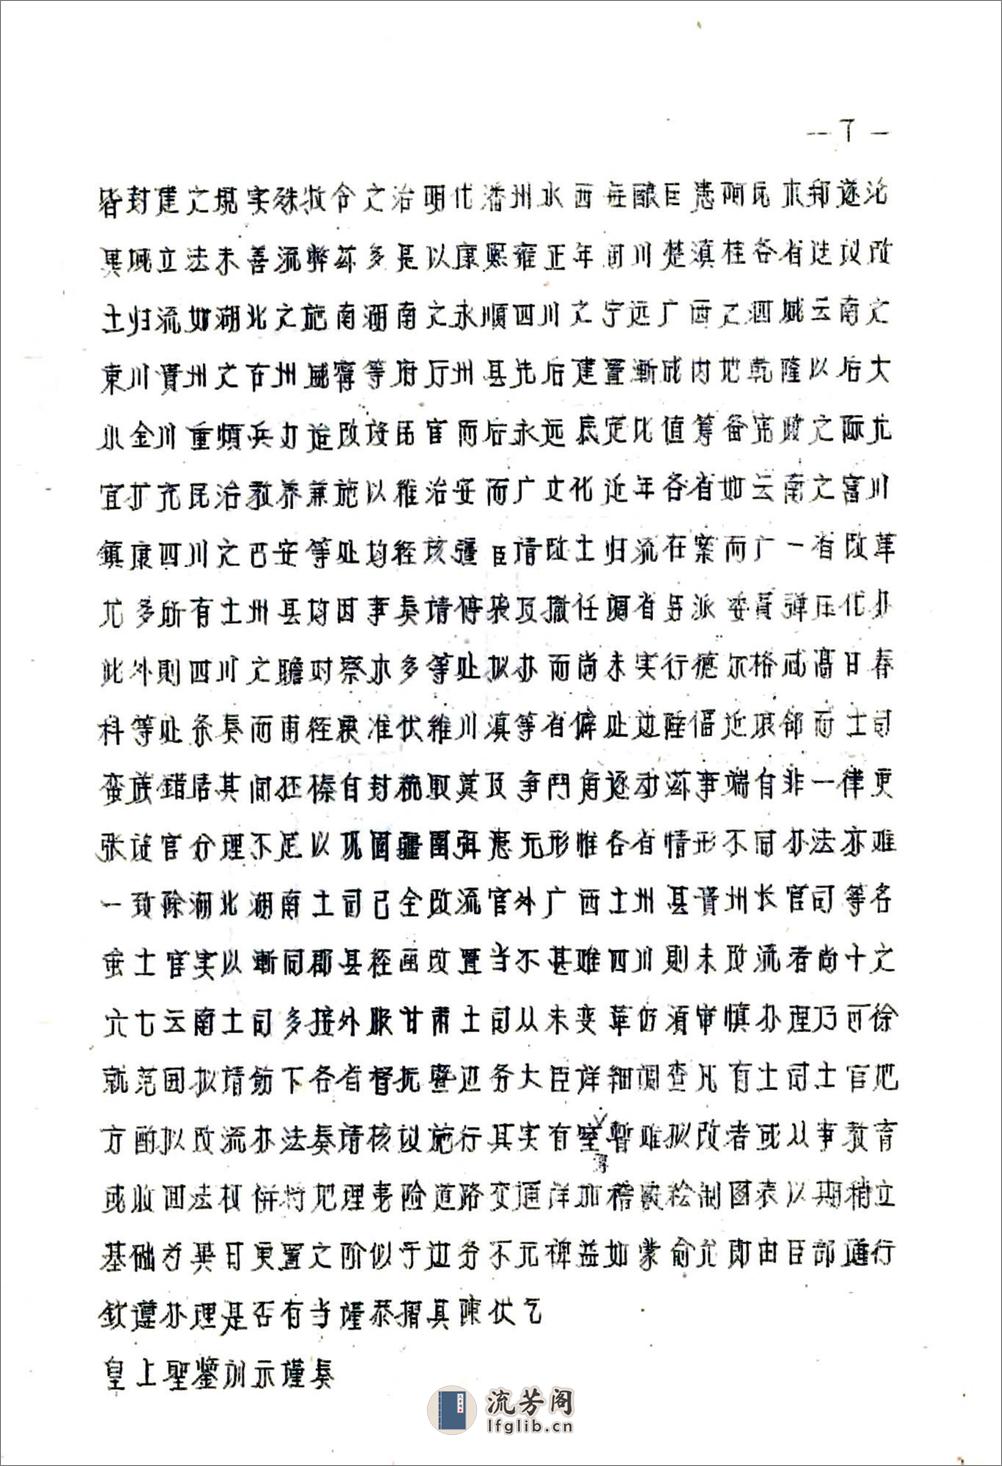 — 7 —
皆封建之规实殊牧令之治明代播州水西每酿巨患阿民木邦遂沦
異域立法未善流弊茲多是以康熙雍正年间川楚滇桂各省迭议改
土归流如湖北之施南湖南之永順四川之宁远广西之泗城云南之
東川貴州之古州威寗等府厅州县先后建置漸成内地乾隆以后大
小金川重煩兵力迨改设民官而后永远底定比值筹备宪政之际尤
宜扩充民治教养兼施以维治安而广文化近年各省如云南之富州
鎮康四川之巴安等处均经该疆臣请改土归流在案而广一省改革
尤多所有土州县均因事奏请停袭及撤任调省另派委員弹压代办
此外則四川之瞻对察木多等处拟办而尚未实行德尔格忒高日春
科等处条奏而甫经諛准伏维川滇等省僻处边陲偪近琅邻而土司
蛮族錯居其间狉榛自封桃取莫及争鬥角逐动滋事端自非一律更
张设官分理不足以巩固疆圉弭患无形惟各省情形不同办法亦难
一致除湖北湖南土司已全改流官外广西土州县貴州长官司等名
虽土官实以漸同郡县经画改置当不甚难四川則未改流者尚十之
六七云南土司多接外服甘肃土司从未变革仍須审慎办理乃可徐
就范围拟请飭下各省督抚暨边务大臣详细调查凡有土司土官地
方酌拟改流办法奏请核议施行其实有窒碍暫难拟改者或从事教育
或收回法权併将地理夷险道路交通详加稽覈绘制图表以期稍立
基础为異日更置之阶似于边务不无裨益如蒙俞允即由臣部通行
欽遵办理是否有当謹恭摺具陳伏乞
皇上聖鉴训示謹奏
流芳阁
lfglib.cn